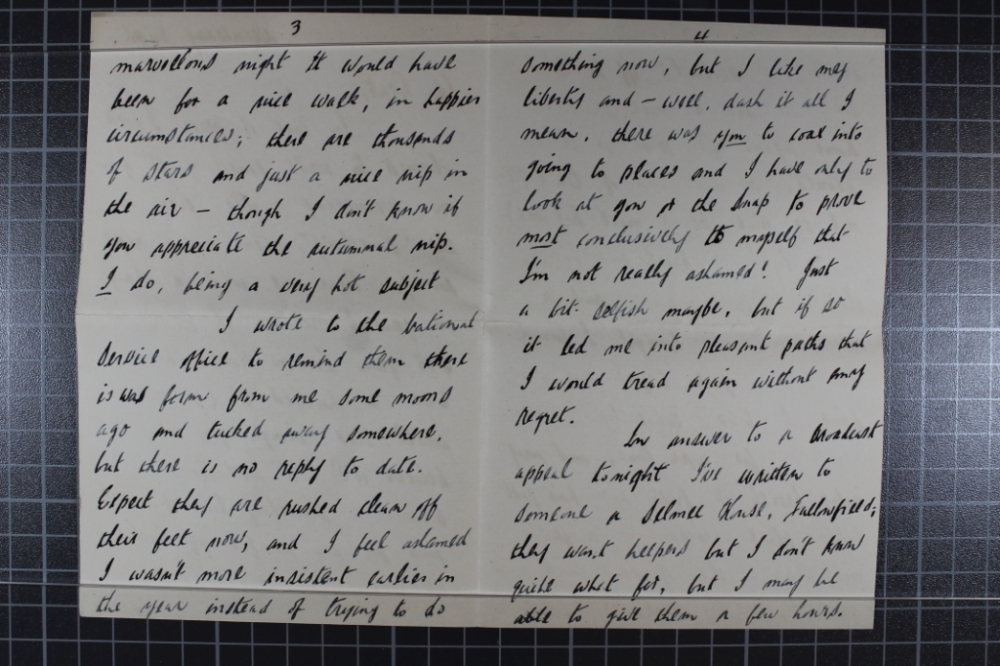 3
marvellous night it would have
been for a nice walk, in happier
circumstances; there are thousands
of stars and just a nice nip in
the air - though I don't know if
you appreciate the autumnal nip.
I do, being a very hot subject
I wrote to the National
Service Office to remind them there
is was form from me some moons
ago and tucked away somewhere,
but there is no reply to date.
Expect they are rushed clean off
their feet now, and I feel ashamed
I wasn't more insistent earlier in
the year instead of trying to do
4
something now, but I like my
liberty and - well, dash it all I
mean, there was you to coax into
going to places and I have only to
look at you or the snap to prove
most conclusively to myself that
I'm not really ashamed! Just
a bit selfish maybe, but if so
it led me into pleasant paths that
I would tread again without any
regret.
In answer to a broadcast
appeal tonight I've written to
someone a House, Fallowfield;
they want helpers but I don't know
quite what for, but I may be
able to give them a few hours.